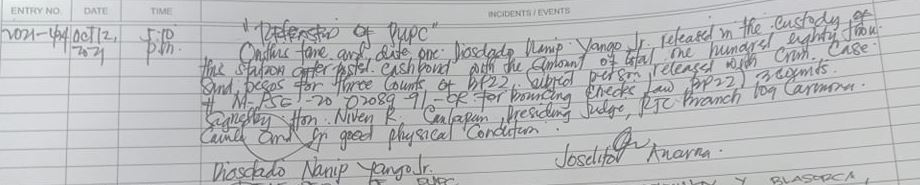 ENTRY NO. DATE TIME INCIDENTS / EVENTS
2021-454 OCT 12, 5:10 " of PUPC"
2021 p.m. On this time and date one Diosdado Nanip Yango Jr. released in the custody of
this station after posted cashbond with the amount of total one hundred eighty thou-
sand pesos for three counts of BP22. Subject person released with Crim. Case
# M-PSE-20-02089-91-CR for bouncing checks law (BP22) 3 counts.
Signed by Hon. Niven R. Canlapan, Presiding Judge, RTC Branch 109 Carmona
and in good physical condition.
Diosdado Nanip Yango Jr. Joselito Anarna.